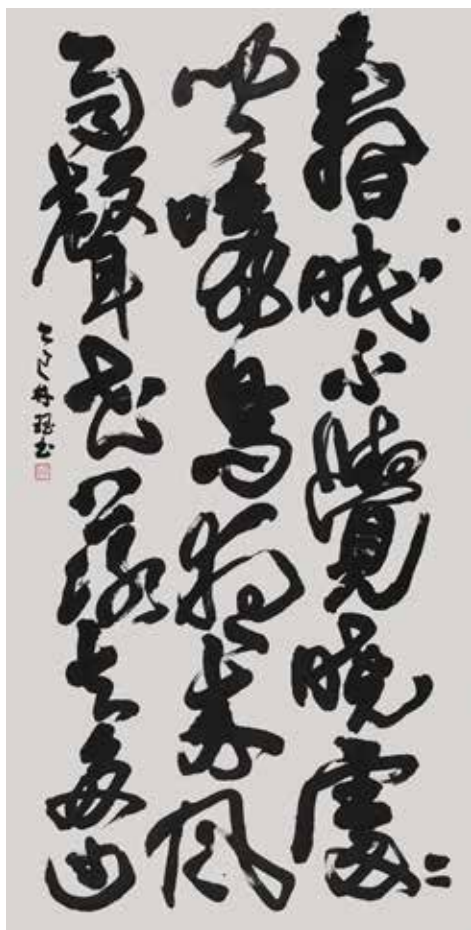 春眠不覺曉處々
聞啼鳥夜來風
雨聲花落知多少